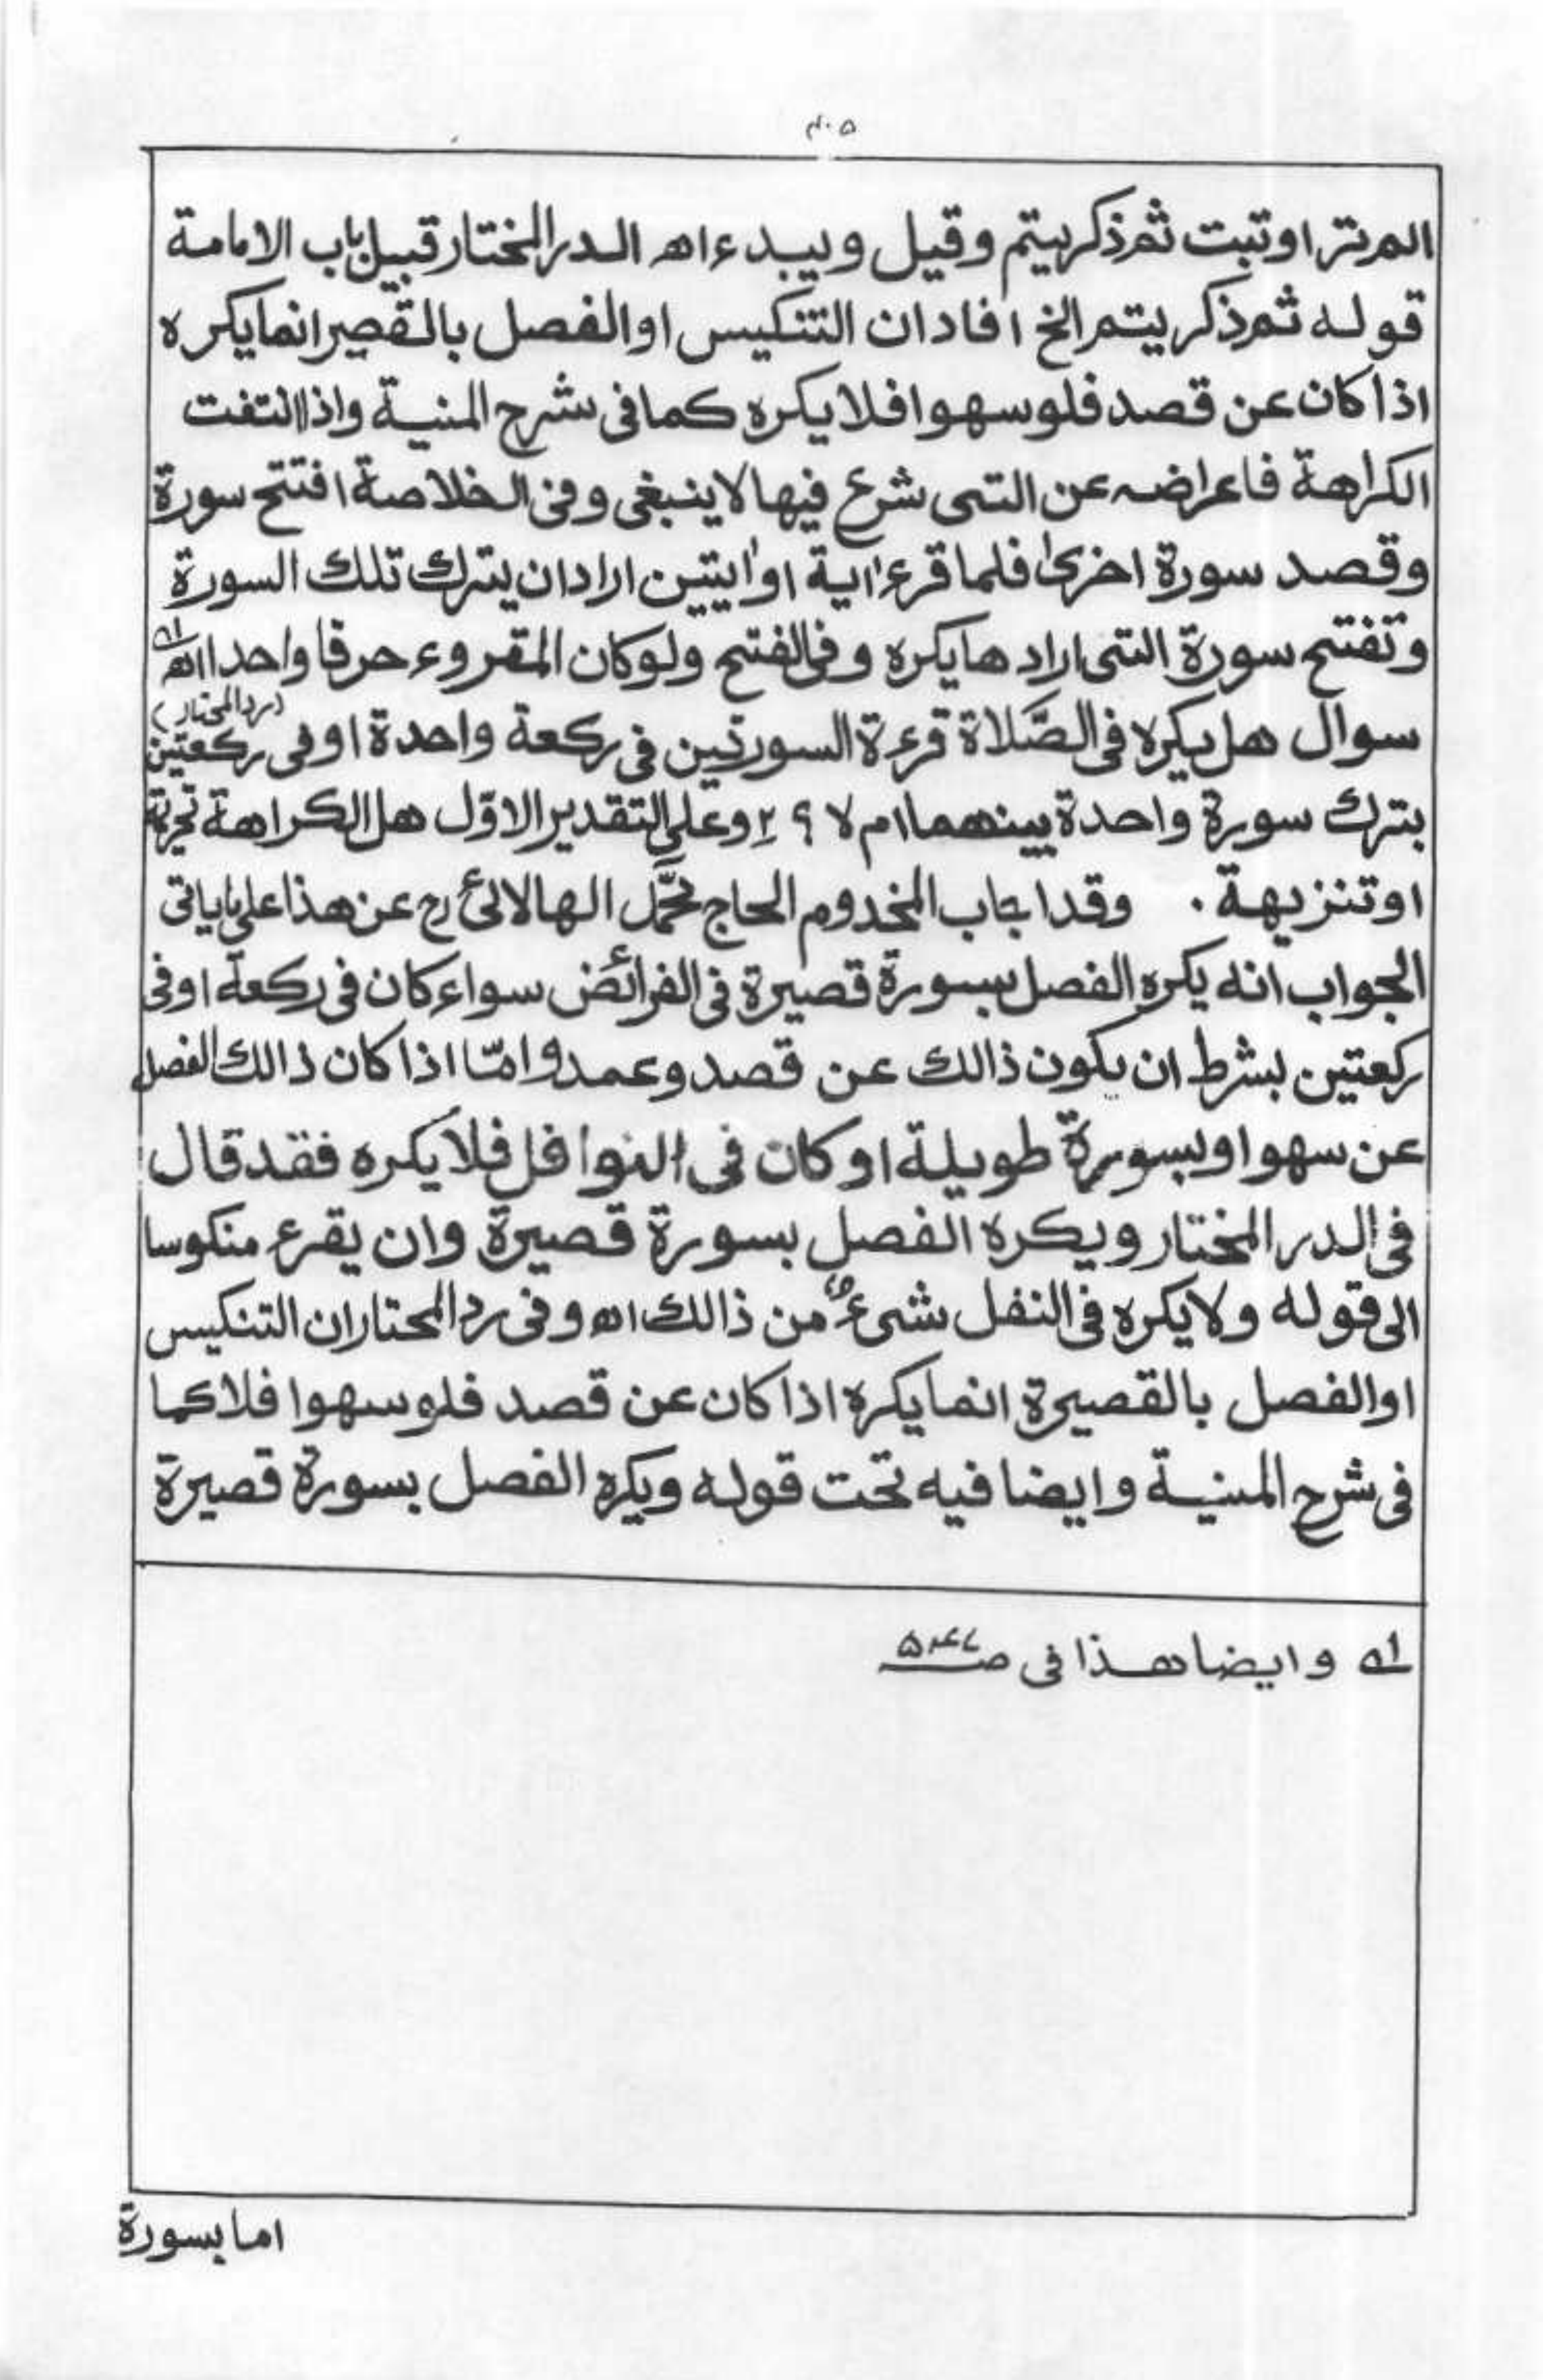 ٤٠٥
المرتر اوتبت ثم ذكر يتم وقيل ويبدء اھ الدر المختار قبيل باب الامامة
قوله ثم ذكر يتم الخ افاد ان التنكيس او الفصل بالقصير انما يكره
اذا كان عن قصد فلو سهوا فلا يكره كما فى شرح المنية واذا انتفت
الكراهة فاعراضه عن التى شرع فيها لا ينبغى وفى الخلاصة افتتح سورة
وقصد سورة اخرىٰ فلما قرء اٰية او اٰيتين اراد ان يترك تلك السورة
وتفتتح سورة التى ارادها يكره وفى الفتح ولو كان المقروء حرفا واحدا اھ ١ھ
(رد المحتار)
سوال هل يكره فى الصَّلاة قرءة السورتين فى ركعة واحدة او فى ركعتين
بترك سورة واحدة بينهما ام لا ؟ ٢ وعلى التقدير الاوّل هل الكراهة تحريمة
او تنزيهة ۔ وقد اجاب المخدوم الحاج محمّد الهالائى رح عن هذا على ماياتى
الجواب انه يكره الفصل بسورة قصيرة فى الفرائض سواء كان فى ركعة او فى
ركعتين بشرط ان يكون ذالك عن قصد وعمد وامّا اذا كان ذالك الفصل
عن سهوا وبسورة طويلة او كان فى النوافل فلا يكره فقد قال
فى الدر المختار ويكره الفصل بسورة قصيرة وان يقرء منكوسا
الى قوله ولا يكره فى النفل شىء من ذالك اھ وفى رد المحتار ان التنكيس
او الفصل بالقصيرة انما يكره اذا كان عن قصد فلو سهوا فلا كما
فى شرح المنية وايضا فيه تحت قوله ويكره الفصل بسورة قصيرة
١ھ وايضا هذا فى صـ
اما بسورة